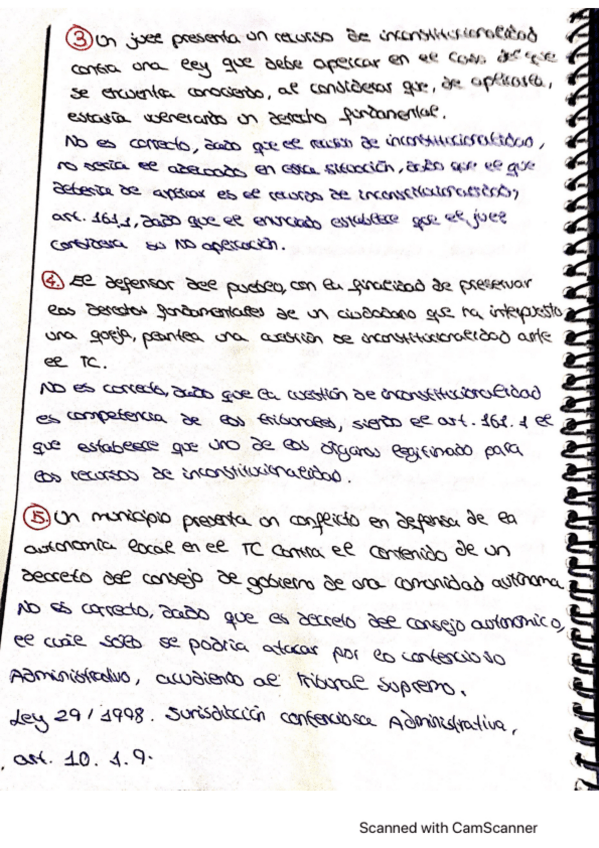 ③ Un juez presenta un recurso de inconstitucionalidad
contra una ley que debe aplicar en el caso del que
se encuentra conociendo, al considerar que, de aplicarla,
estaría vulnerando un derecho fundamental.
No es correcto, dado que el recurso de inconstitucionalidad,
no sería el adecuado en esta situación, dado que el que
debería de aplicar es el recurso de inconstitucionalidad,
art. 161.1, dado que el enunciado establece que el juez
considera su NO aplicación.
④. El defensor del pueblo, con la finalidad de preservar
los derechos fundamentales de un ciudadano que ha interpuesto
una queja, plantea una cuestión de inconstitucionalidad ante
el TC.
No es correcto, dado que la cuestión de inconstitucionalidad
es competencia de los tribunales, siendo el art. 161.1 el
que establece que uno de los órganos legitimado para
los recursos de inconstitucionalidad.
⑤. Un municipio presenta un conflicto en defensa de la
autonomía local en el TC contra el contenido de un
decreto del consejo de gobierno de una comunidad autónoma
No es correcto, dado que es decreto del consejo autonomico,
el cual solo se podría atacar por lo contencioso
Administrativo, acudiendo al Tribunal Supremo.
Ley 29/1998. Jurisdicción contenciosa Administrativa,
art. 10. 1. 9.
Scanned with CamScanner